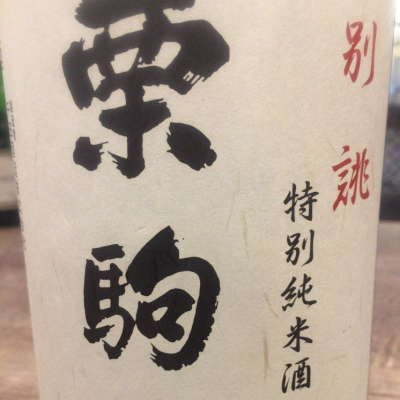 別誂
特別純米酒
栗駒